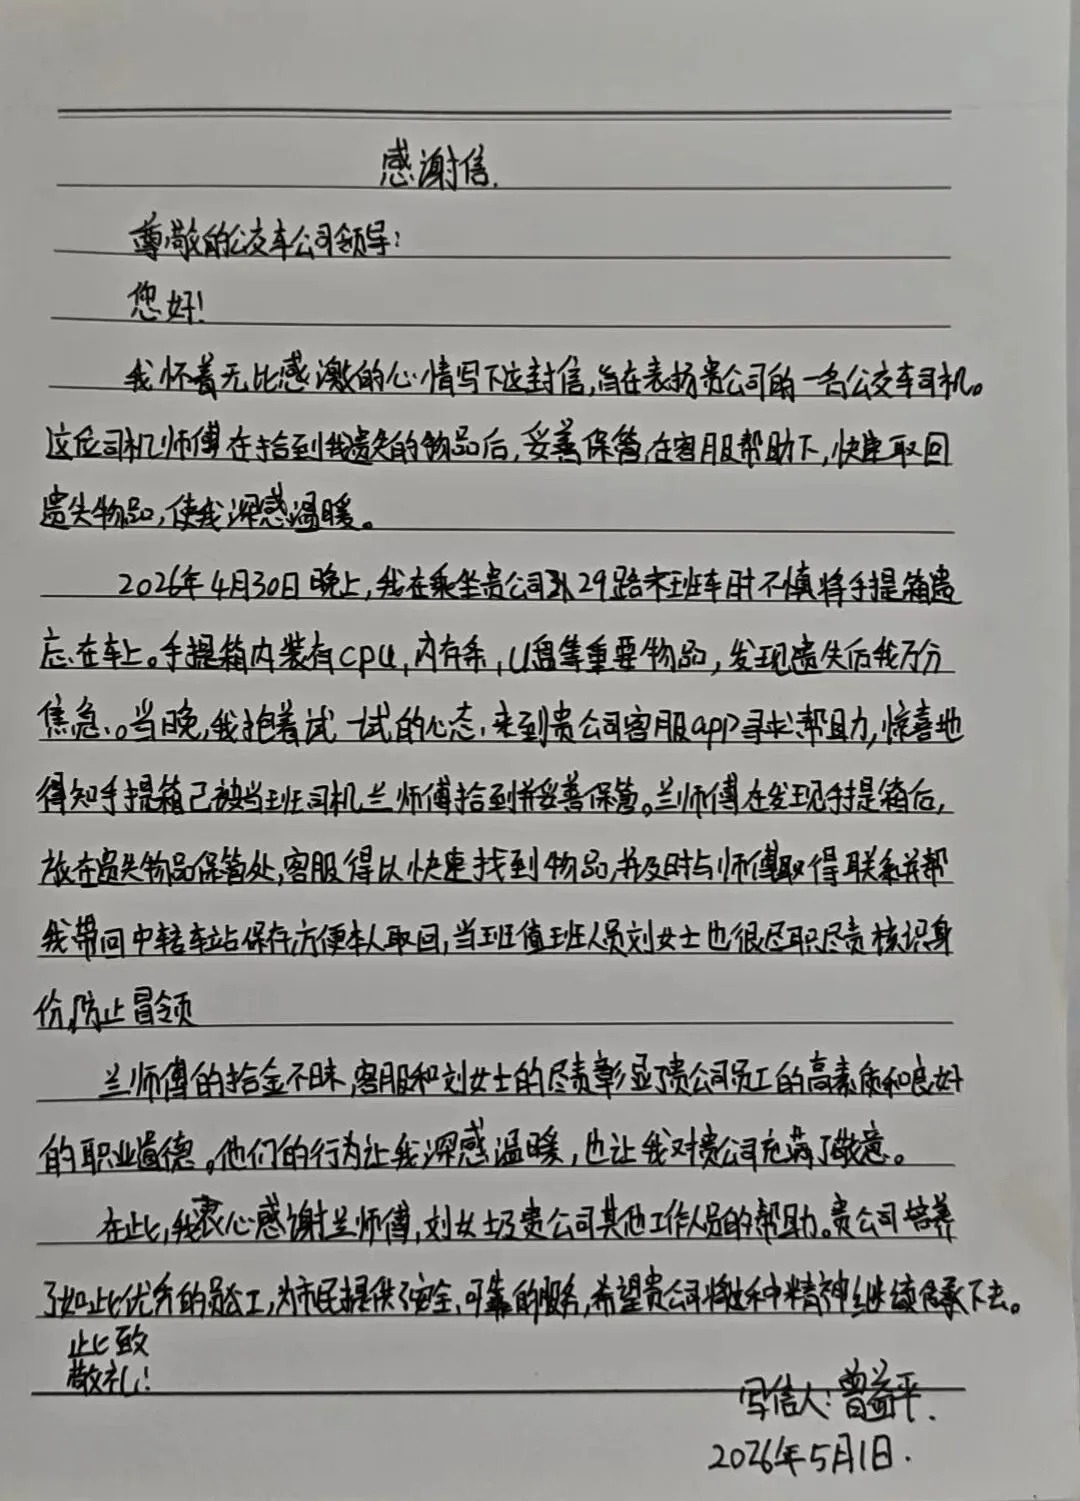 感谢信.
尊敬的公交车公司领导:
您好!
我怀着无比感激的心情写下这封信,旨在表扬贵公司的一名公交车司机。
这位司机师傅在拾到我遗失的物品后,妥善保管,在客服帮助下,快速取回
遗失物品,使我深感温暖。
2026年4月30日晚上,我在乘坐贵公司 29路末班车时不慎将手提箱遗
忘在车上。手提箱内装有cpu,内存条,U盘等重要物品,发现遗失后我万分
焦急。当晚,我抱着试一试的心态,来到贵公司客服app寻求帮助,惊喜地
得知手提箱已被当班司机兰师傅拾到并妥善保管。兰师傅在发现手提箱后,
放在遗失物品保管处,客服得以快速找到物品,并及时与师傅取得联系并帮
我带回中转车站保存方便本人取回,当班值班人员刘女士也很尽职尽责核识身
份,防止冒领
兰师傅的拾金不昧,客服和刘女士的尽责彰显了贵公司员工的高素质和良好
的职业道德。他们的行为让我深感温暖,也让我对贵公司充满了敬意。
在此,我衷心感谢兰师傅,刘女士及贵公司其他工作人员的帮助。贵公司培养
了如此优秀的员工,为市民提供了安全,可靠的服务,希望贵公司将这种精神继续传承下去。
此致
敬礼!
写信人:曾益平.
2026年5月1日.